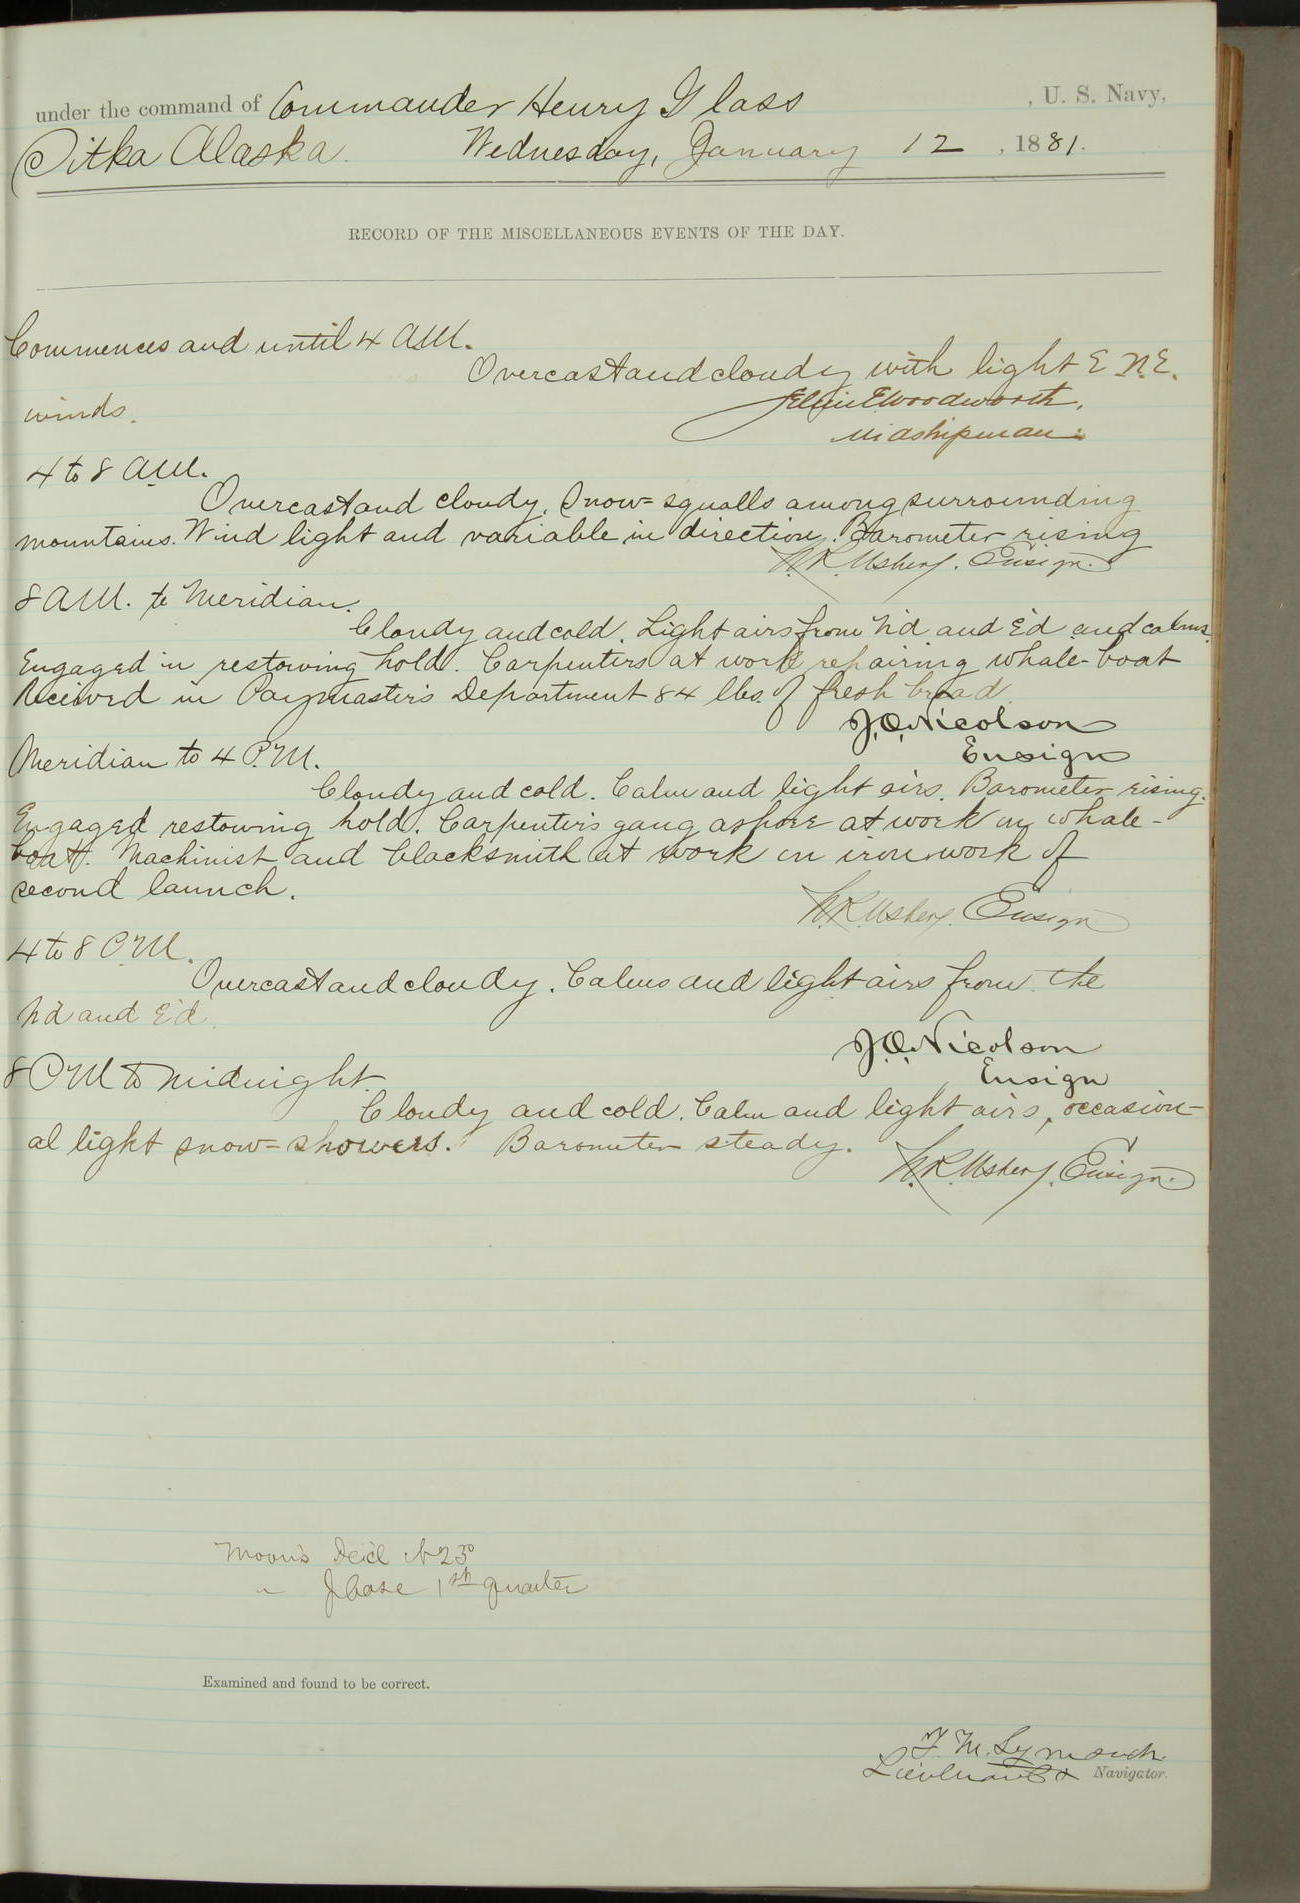 under the command of Commander Henry Glass , U. S. Navy,
Sitka Alaska. Wednesday, January 12 , 1881.
RECORD OF THE MISCELLANEOUS EVENTS OF THE DAY.
Commences and until 4 A.M.
Overcast and cloudy with light E N.E.
winds.
Woodworth,
Midshipman.
4 to 8 A.M.
Overcast and cloudy. Snow-squalls among surrounding
mountains. Wind light and variable in direction. Barometer rising
Usher, Ensign.
8 A.M. to Meridian.
Cloudy and cold. Light airs from N'd and E'd and calms.
Engaged in restowing hold. Carpenters at work repairing whale-boat
Received in Paymaster's Department 84 lbs. of fresh bread.
J.O. Nicolson
Ensign
Meridian to 4 P.M.
Cloudy and cold. Calm and light airs. Barometer rising.
Engaged restowing hold. Carpenter's gang ashore at work on whale-
boat. Machinist and blacksmith at work on iron work of
second launch.
Usher, Ensign
4 to 8 P.M.
Overcast and cloudy. Calms and light airs from the
N'd and E'd.
J.O. Nicolson
Ensign
8 P.M to Midnight.
Cloudy and cold. Calm and light airs, occasion-
al light snow-showers. Barometer steady.
Usher, Ensign.
Moon's Decl N 23°
" Phase 1st quarter
Examined and found to be correct.
F. M. Symonds
Lieutenant & Navigator.